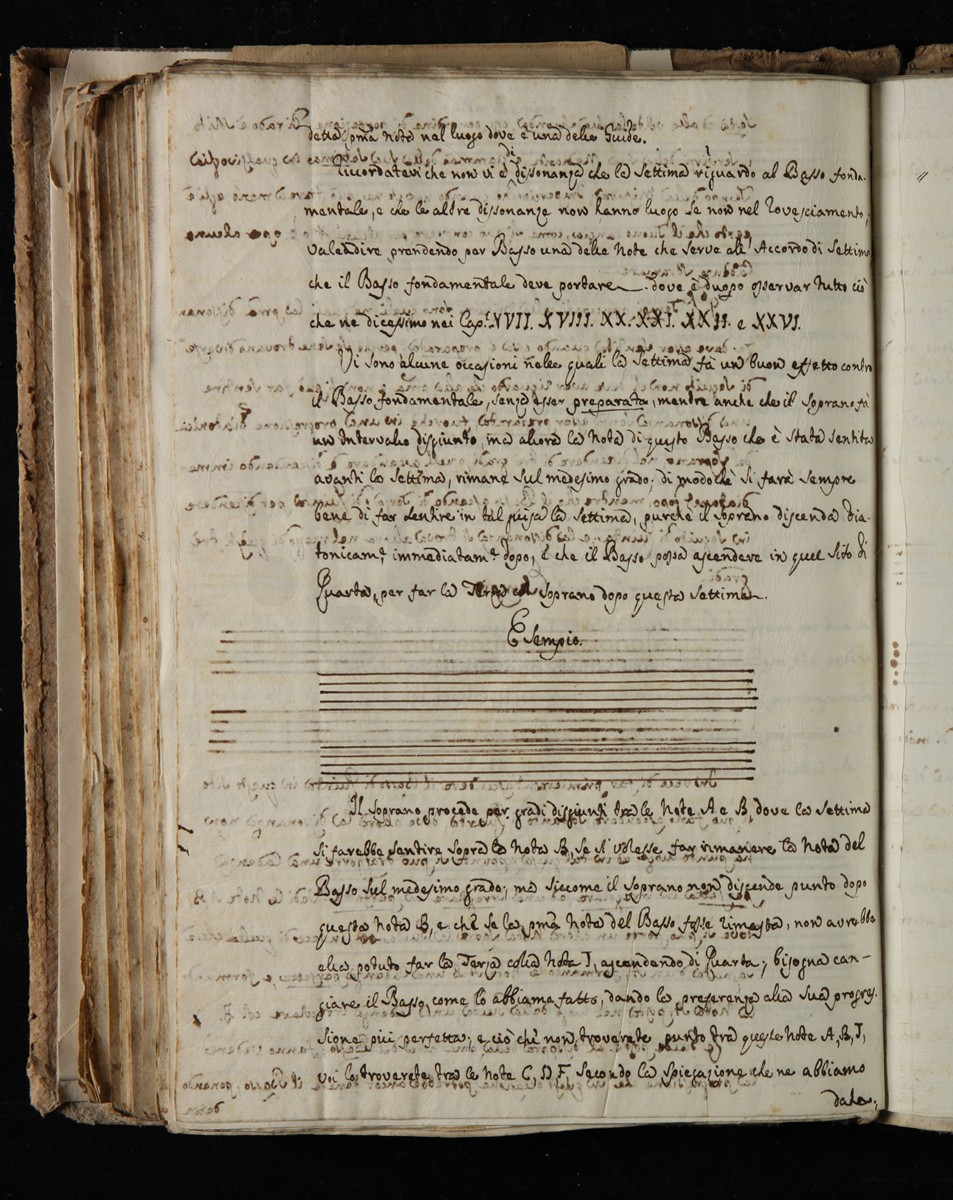 detta pma Nota nel luogo dove è una delle Guide.
Riccordatevi che non vi è di dissonanza che la Settima riguardo al Basso fonda-
mentale, e che le altre dissonanze non hanno luogo se non nel rovesciamento,
valendire prendendo per Basso una delle Note che serve all' Accordo di Settima
che il Basso fondamentale deve portare. dove è duopo osservar tutto ciò
che ne dicessimo nei Cap. XVII. XVIII. XX. XXI. XXII. e XXVI.
Vi sono alcune occasioni nelle quali la Settima fà un buon effetto contro
il Basso fondamentale, senza esser preparata, mentre anche che il Soprano fà
un Intervallo disgiunto, ma allora la Nota di questo Basso che è stata sentita
avanti la Settima, rimane sul medesimo grado; di modo chè si farà sempre
bene di far sentire in tal guisa la Settima, purche il Soprano discenda dia-
tonicamte immediatamte dopo, e che il Basso possa ascendere in quel sito di
Quarta, per far la Terza col Soprano dopo questa Settima.
Esempio.
Il Soprano procede per gradi disgiunti tra le Note A e B, dove la Settima
si farebbe sentire sopra la Nota B, se si volesse far rimanere la Nota del
Basso sul medesimo grado; ma siccome il Soprano non discende punto dopo
questa Nota B, e che se la pma Nota del Basso fosse rimasta, non avrebbe
ella potuto far la Terza colla Nota J, ascendendo di Quarta; bisogna can-
giare il Basso, come lo abbiamo fatto, dando la preferenza alla sua progres-
sione più perfetta; e ciò che non troverete punto tra queste Note A, B, J,
voi lo troverete tra le Note C, D, F, Secondo la spiegazione che ne abbiamo
data;